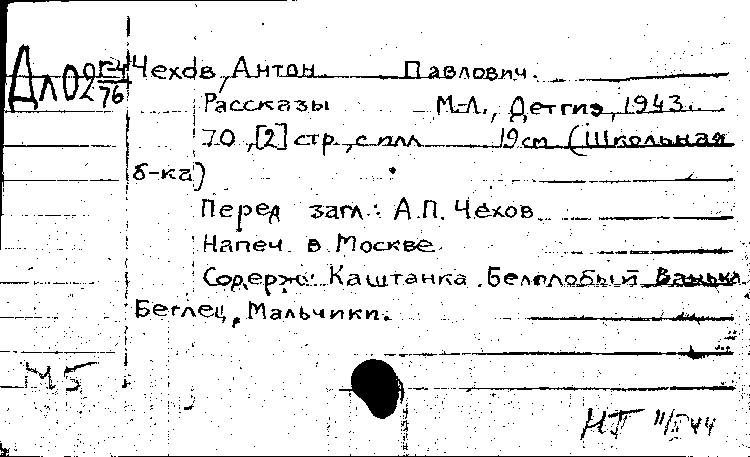 Дл02 Г-4/76 Чехов, Антон Павлович.
Рассказы М.-Л., Детгиз, 1943.
70, [2] стр., с илл 19 см (Школьная
б-ка)
Перед загл.: А.П. Чехов
Напеч. в Москве
Содерж: Каштанка. Белолобый Ванька
Беглец, Мальчики.
М5
НП 11/II 44